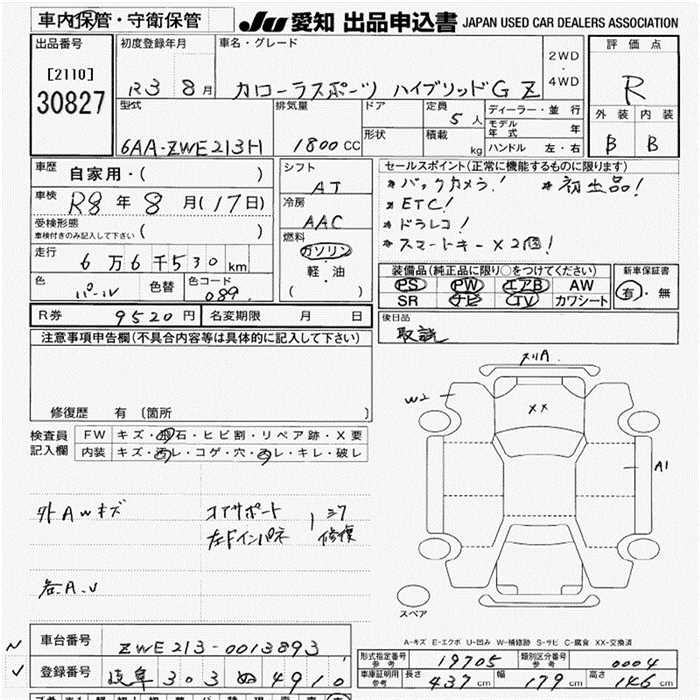 車内保管・守衛保管
JU 愛知 出品申込書 JAPAN USED CAR DEALERS ASSOCIATION
出品番号 初度登録年月 車名・グレード 評価点
[2110] 2WD
30827 R3 8月 カローラスポーツ ハイブリッドG Z 4WD R
型式 排気量 ドア 定員 5人 ディーラー・並行 外装 内装
モデル年式 年
6AA-ZWE213H 1800cc 形状 積載 kg ハンドル 左・右 B B
車歴 自家用・( ) シフト AT
セールスポイント(正常に機能するものに限ります)
*バックカメラ! *初出品!
車検 R8年8月(17日) 冷房 AAC
*ETC!
受検形態 車検付きのみ記入して下さい ( )
*ドラレコ!
走行 6万6千530km 燃料 ガソリン
*スマートキー×2個!
軽・油
( )
色 パール 色替 色コード 089
装備品(純正品に限り○をつけてください) 新車保証書
PS PW エアB AW 有・無
SR ナビ TV カワシート
R券 9520円 名変期限 月 日
後日品
取説
注意事項申告欄(不具合内容等は具体的に記入して下さい)
修復歴 有 [箇所 ]
検査員記入欄 FW キズ・飛石・ヒビ割・リペア跡・X要
内装 キズ・汚レ・コゲ・穴・スレ・キレ・破レ
W2
XX
A1
外AWキズ コアサポート
左Fインパネ 修復
各A.U
スペア
A-キズ E-エクボ U-凹み W-補修跡 S-サビ C-腐食 XX-交換済
車台番号 ZWE213-0013893
登録番号 岐阜 303 ぬ 4910
形式指定番号 参考 19705 類別区分番号 参考 0004
車庫証明用 参考 長さ 437cm 幅 179cm 高さ 146cm